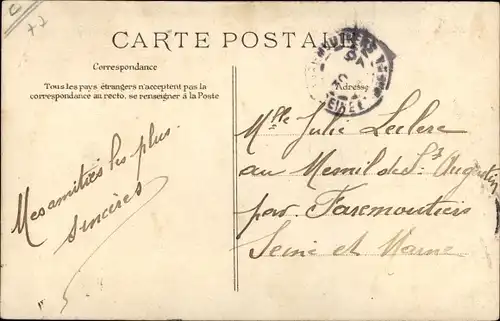 CARTE POSTALE
Correspondance
Tous les pays étrangers n'acceptent pas la
correspondance au recto, se renseigner à la Poste
Adresse
Mes amitiés les plus
sincères
Mlle Julie Leclerc
au Mesnil de St Augustin
par Faremoutiers
Seine et Marne